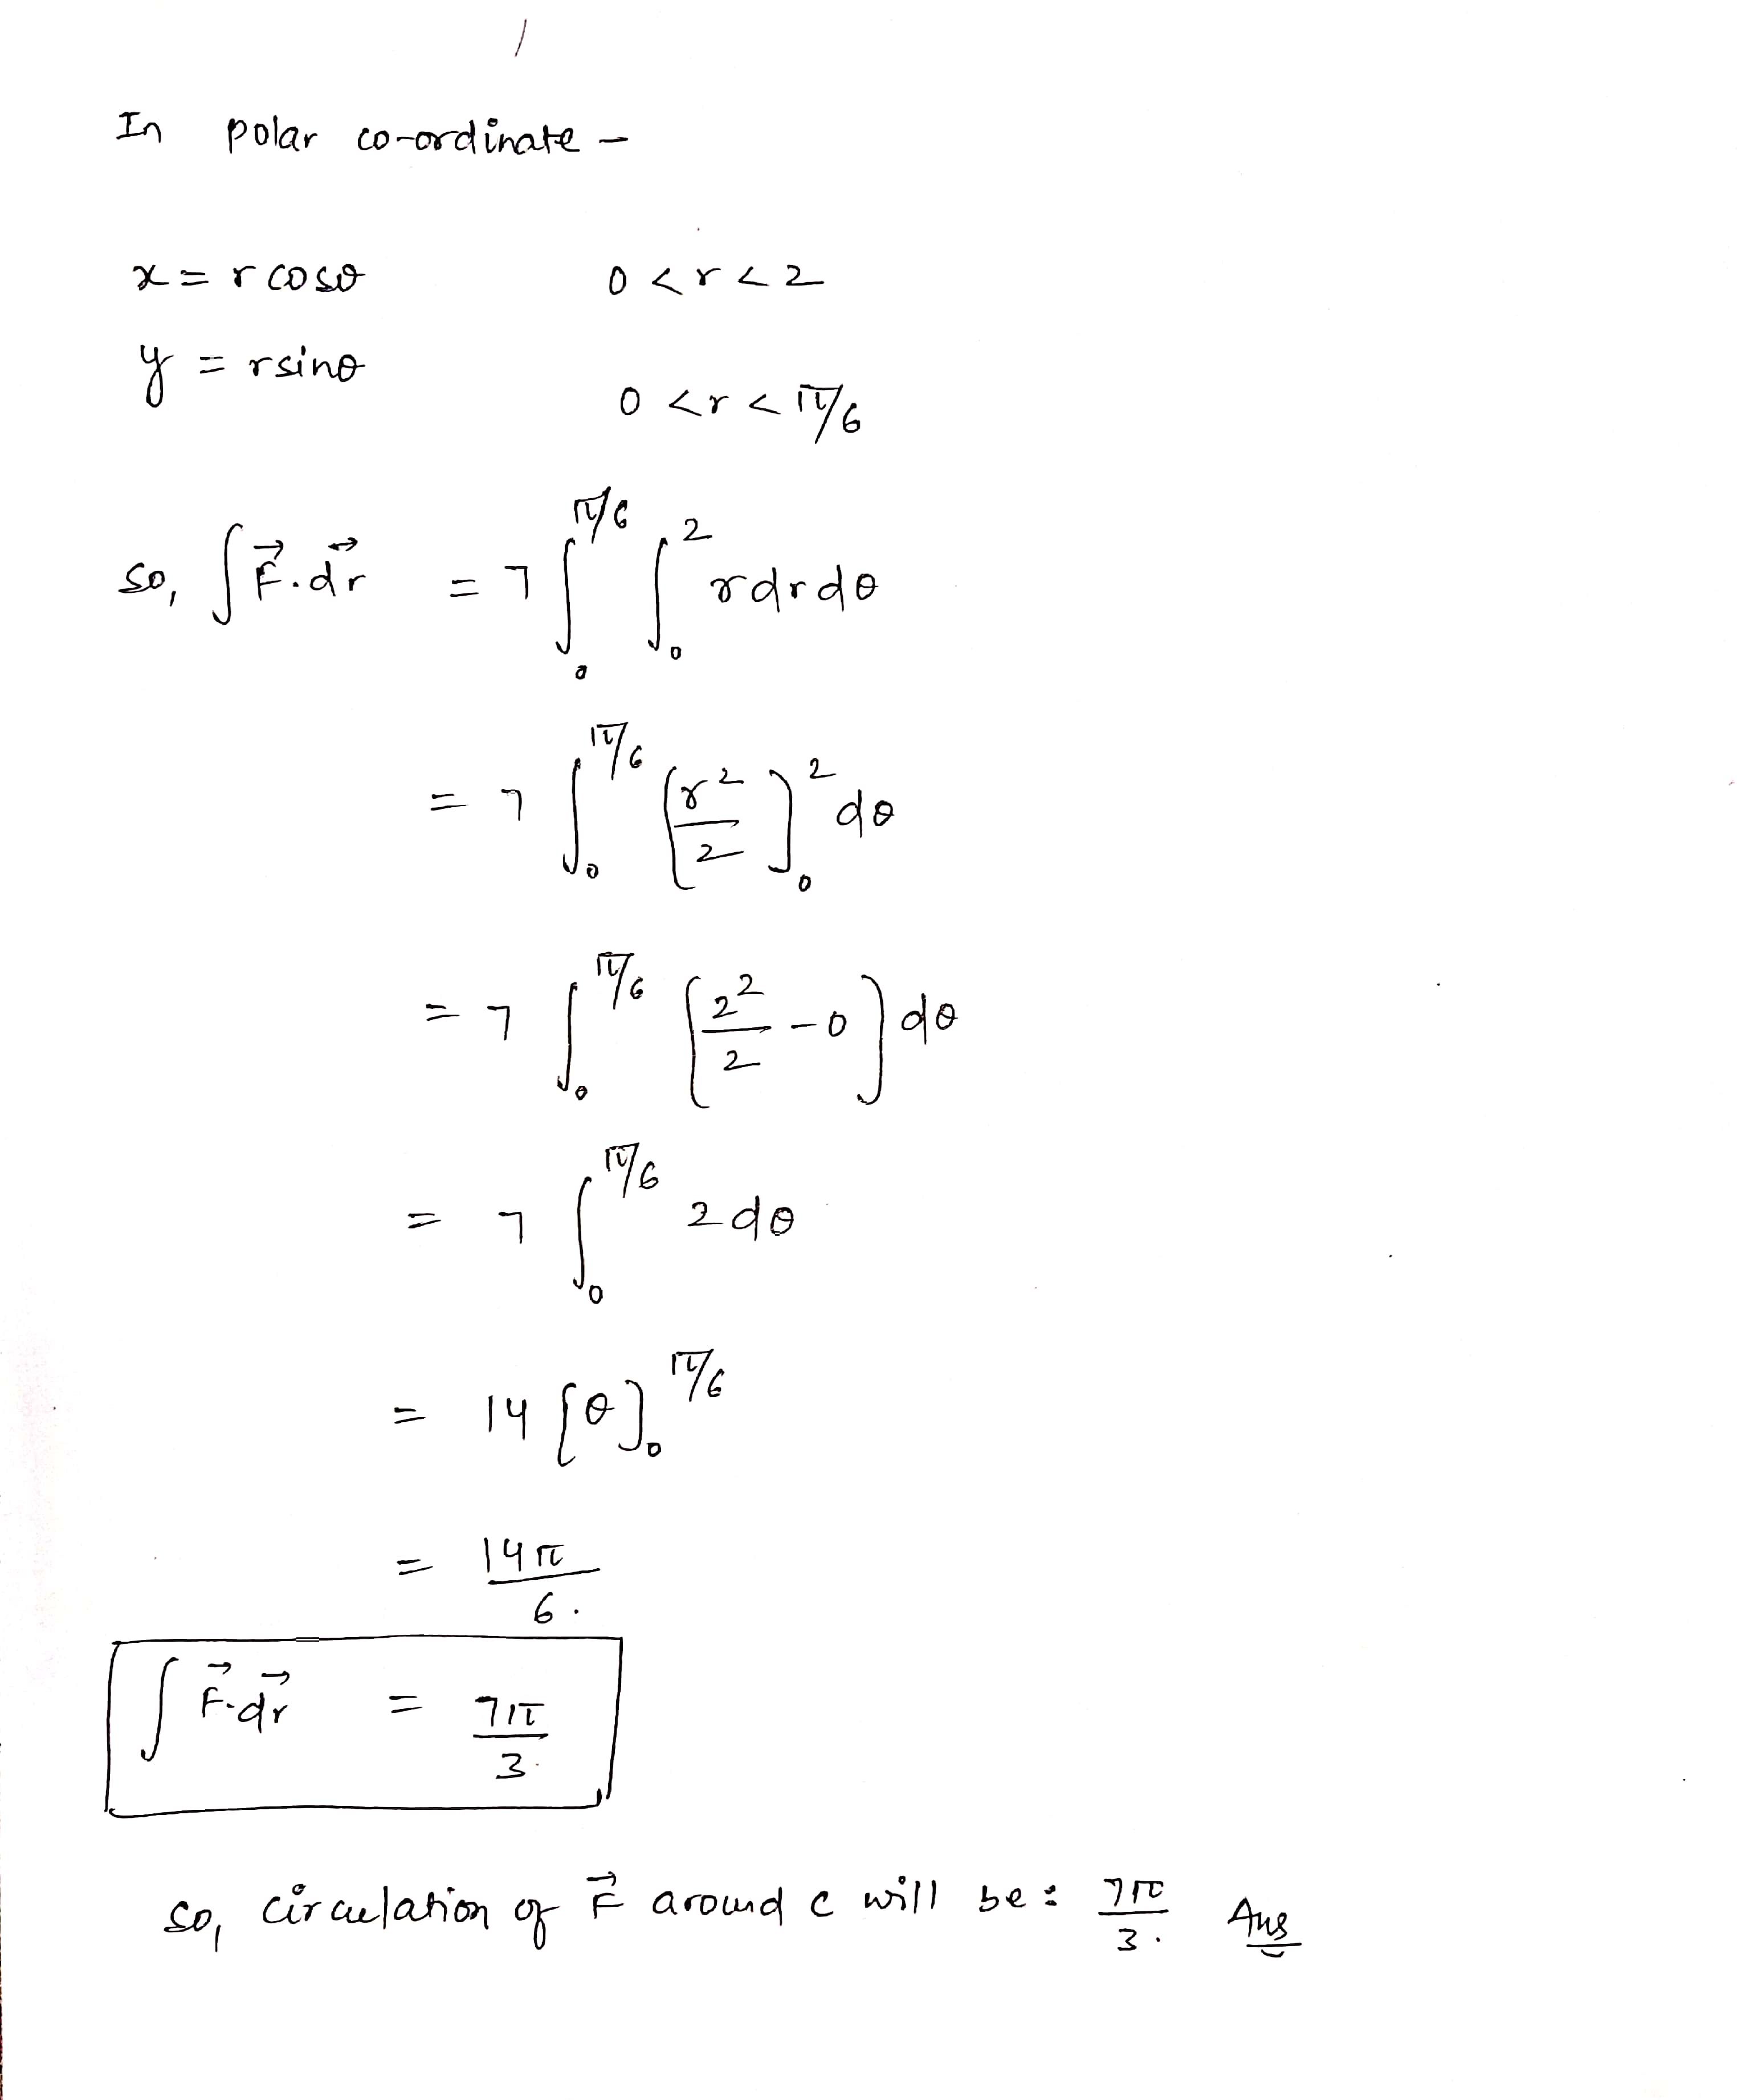 In polar co-ordinate –
x = r cosθ 0 < r < 2
y = r sinθ 0 < r < π/6
so, ∫ F⃗.dr⃗ = 7 ∫₀^{π/6} ∫₀² r dr dθ
= 7 ∫₀^{π/6} [r²/2]₀² dθ
= 7 ∫₀^{π/6} [2²/2 – 0] dθ
= 7 ∫₀^{π/6} 2 dθ
= 14 [θ]₀^{π/6}
= 14π/6.
∫ F⃗.dr⃗ = 7π/3.
So, circulation of F⃗ around c will be: 7π/3. Ans